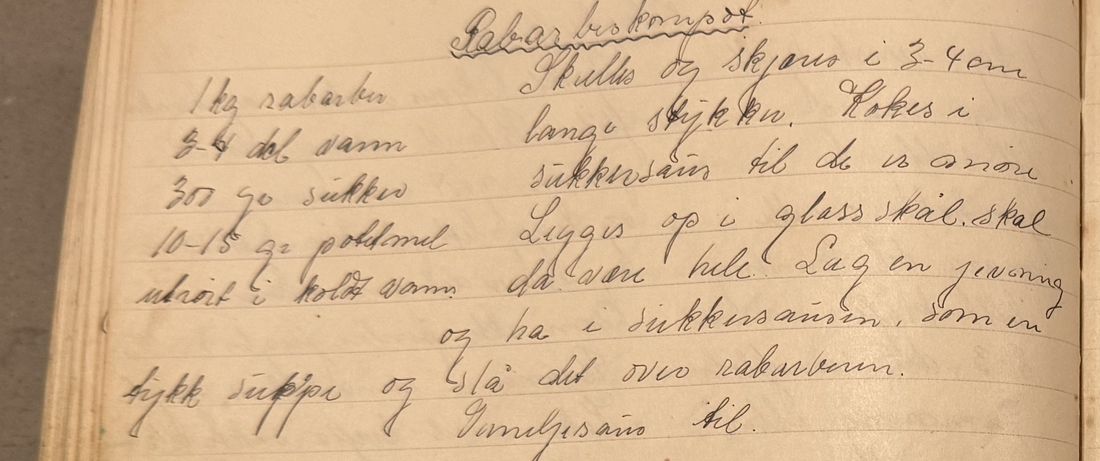 Rabarbrakompot.
1 kg rabarber
3-4 del vann
300 gr sukker
10-15 gr potetmel
utrørt i koldt vann.
Skulles og skjæres i 3-4 cm
lange stykker. Kokes i
sukkersaus til de er møre
Legges op i glasskål. skal
da være hele. Lag en jevning
og ha i sukkersausen, som en
tykk suppe og slå det over rabarberen.
Vaniljesaus til.